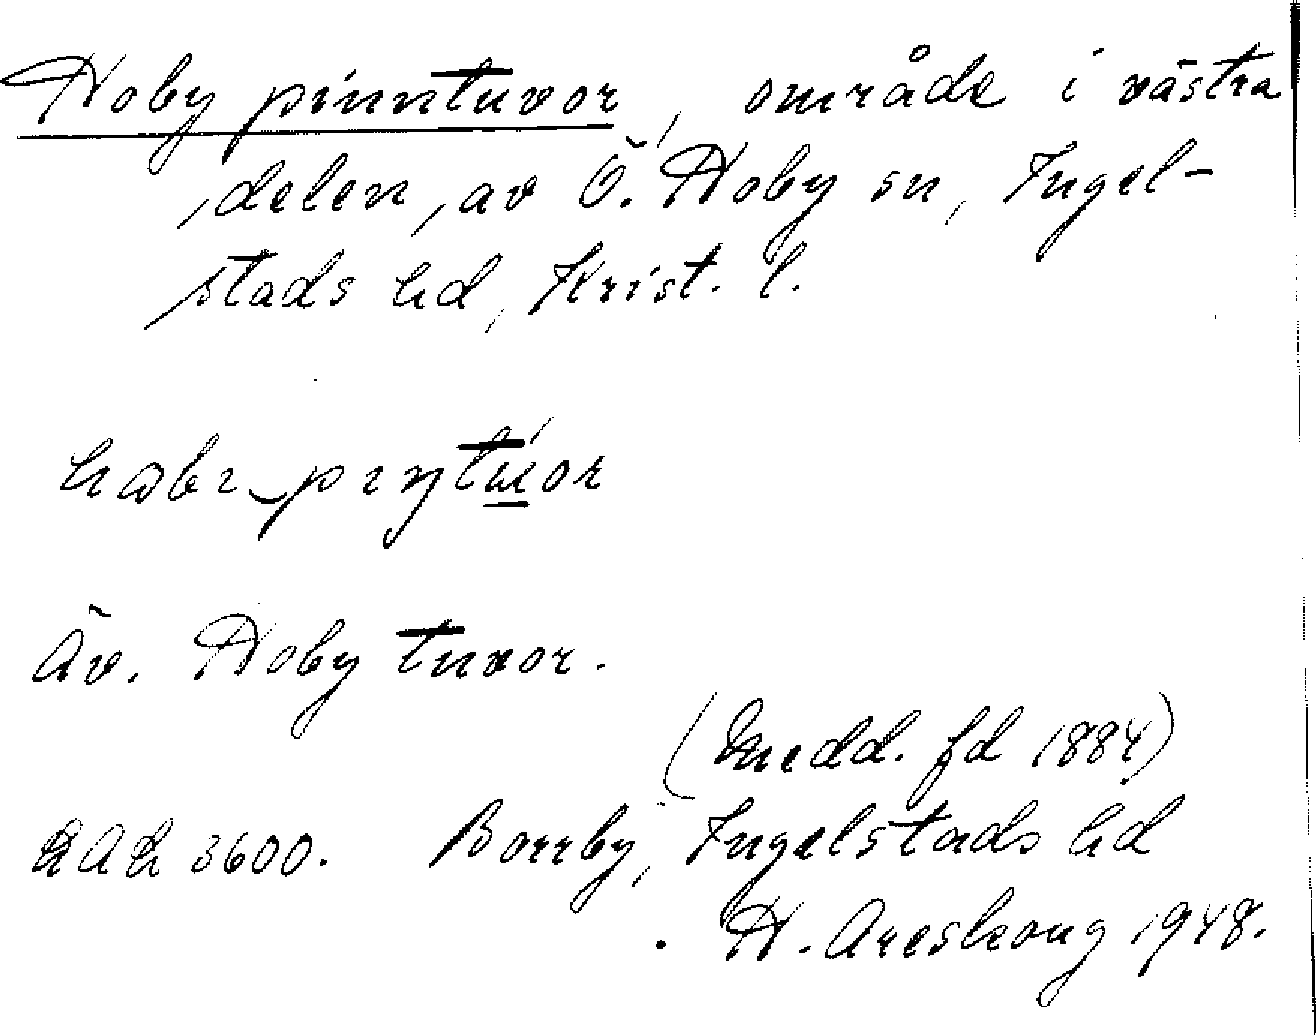 Hoby pinntuvor, område i västra
delen av Ö. Hoby sn, Ingel-
stads hd, Krist. l.
Äv. Hoby tuvor.
(Medd. fd 1884)
3600. Borrby, Ingelstads hd
H. Areskoug 1948.